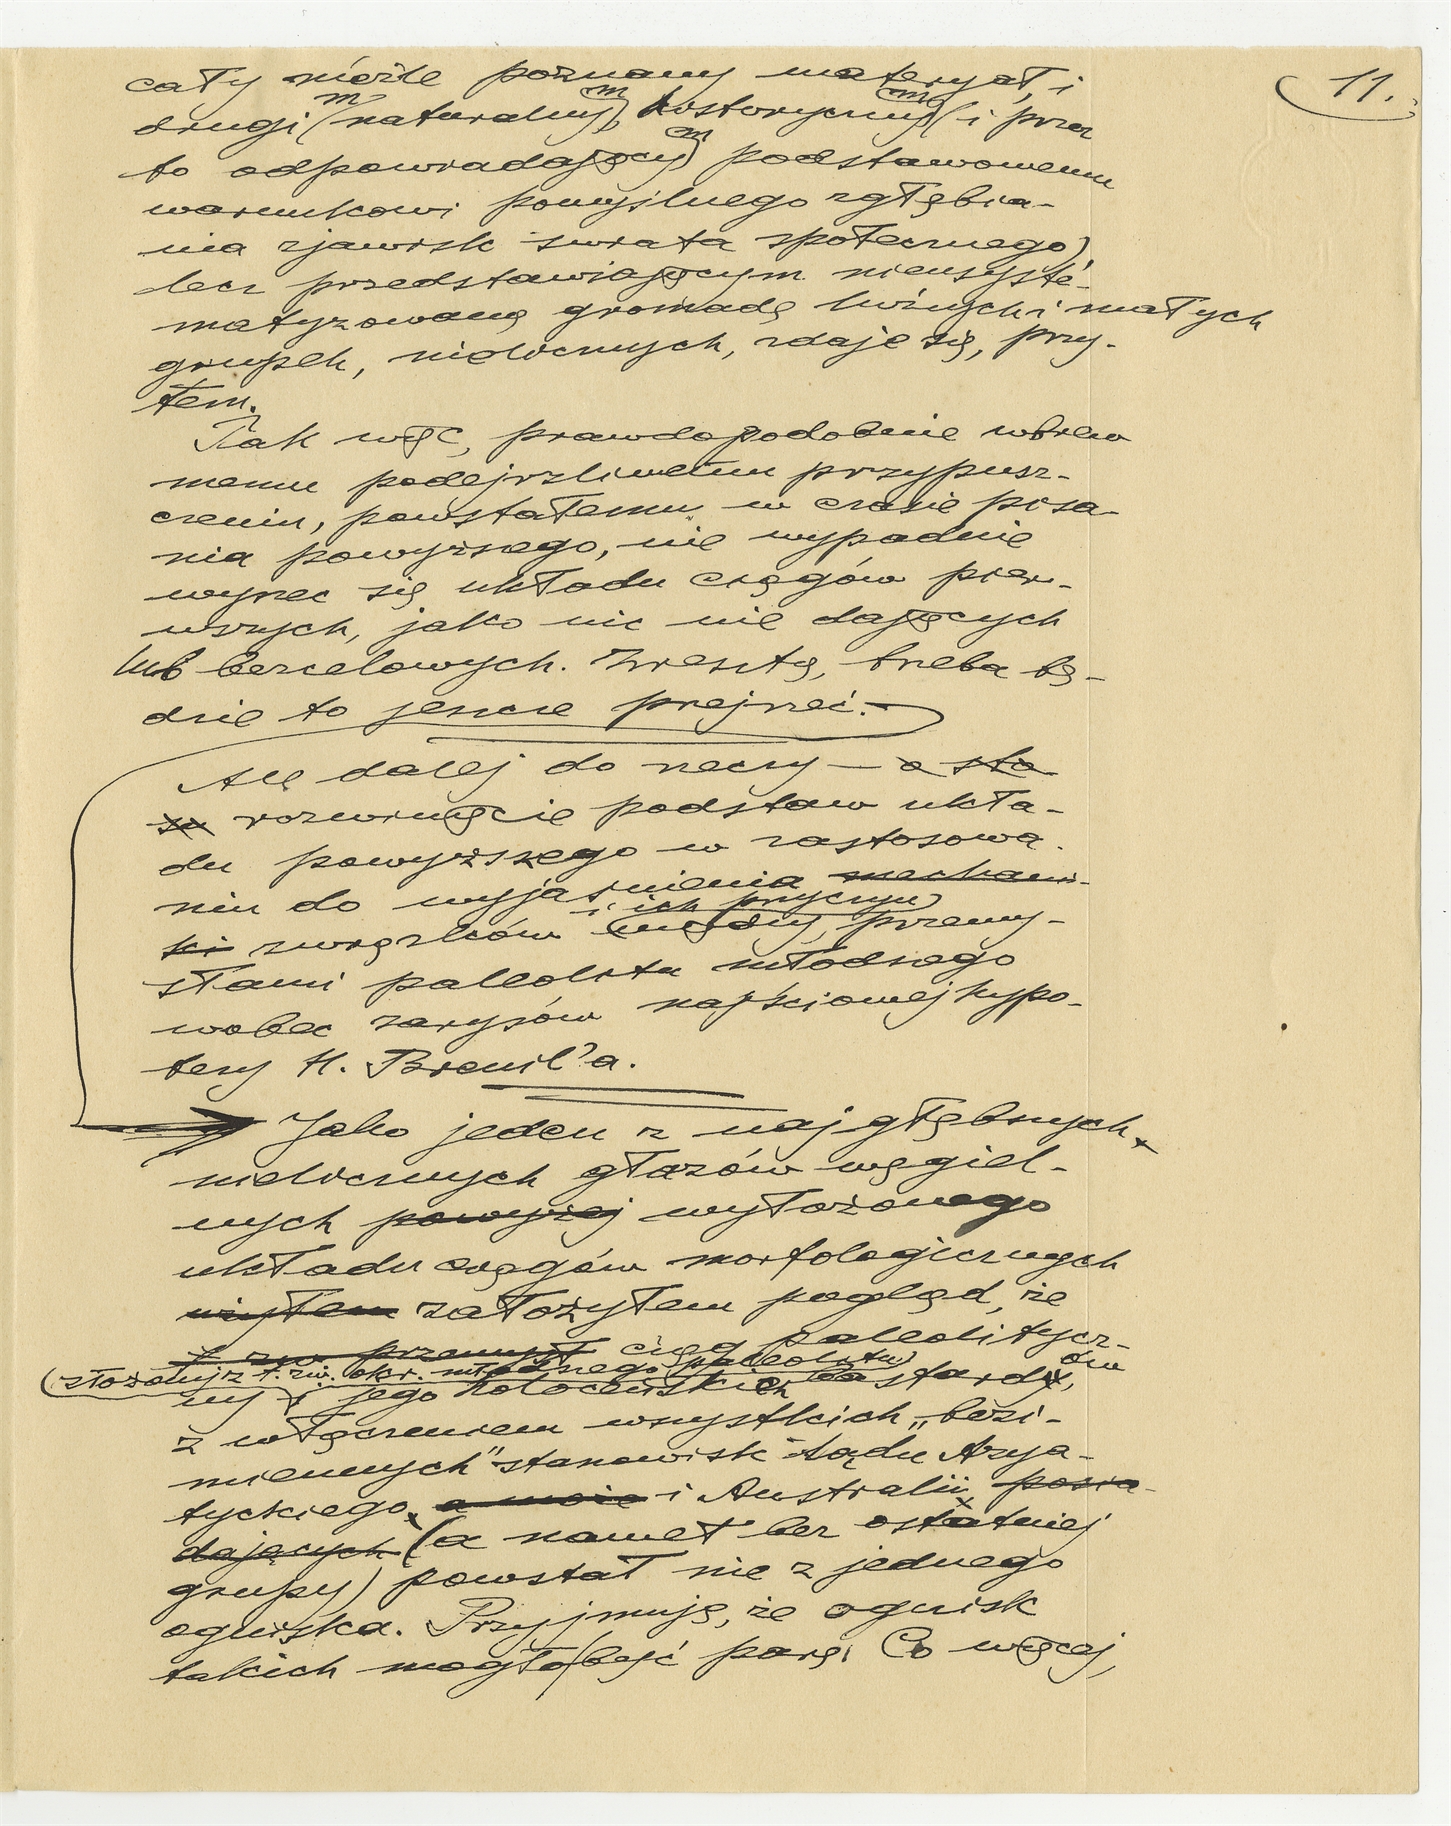 11.
cały nieźle poznany materyał, i
drugi (naturalnym, historycznym (i przez
to odpowiadającym) podstawowemu
warunkowi pomyślnego zgłębia-
nia zjawisk świata społecznego)
lecz przedstawiającym nieusyste-
matyzowaną gromadę luźnych i małych
grupek, nielicznych, zdaje się, przy-
tem.
Tak więc, prawdopodobnie wbrew
memu podejrzliwemu przypusz-
czeniu, powstałemu w czasie pisa-
nia powyższego, nie wypadnie
wyrzec się układu ciągów pier-
wszych, jako nic nie dających
lub bezcelowych. Zresztą, trzeba bę-
dzie to jeszcze przejrzeć. —
Ale dalej do rzeczy — a sto
su rozwinięcie podstaw ukła-
du powyższego w zastosowa-
niu do wyjaśnienia mechani-
i ich przyczyn
ki związków między przemy-
słami paleolitu młodszego
wobec zarysów najściowej hypo-
tezy H. Breuil'a.
Jako jeden z najgłębszych
nielicznych głazów węgiel-
nych powyżej wyłożonego
układu ciągów morfologicznych
założyłem pogląd, że
z zw. przemysł ciąg paleolitycz-
(złożony z t. zw. okr. młodszego paleolitu)
ny i jego holoceńskich bastardów,
z włączeniem wszystkich „bezi-
miennych" stanowisk lądu Azya-
tyckiego a może i Australii posia-
dających (a nawet bez ostatniej
grupy) powstał nie z jednego
ogniska. Przyjmuję, że ognisk
takich mogło być parę. Co więcej,